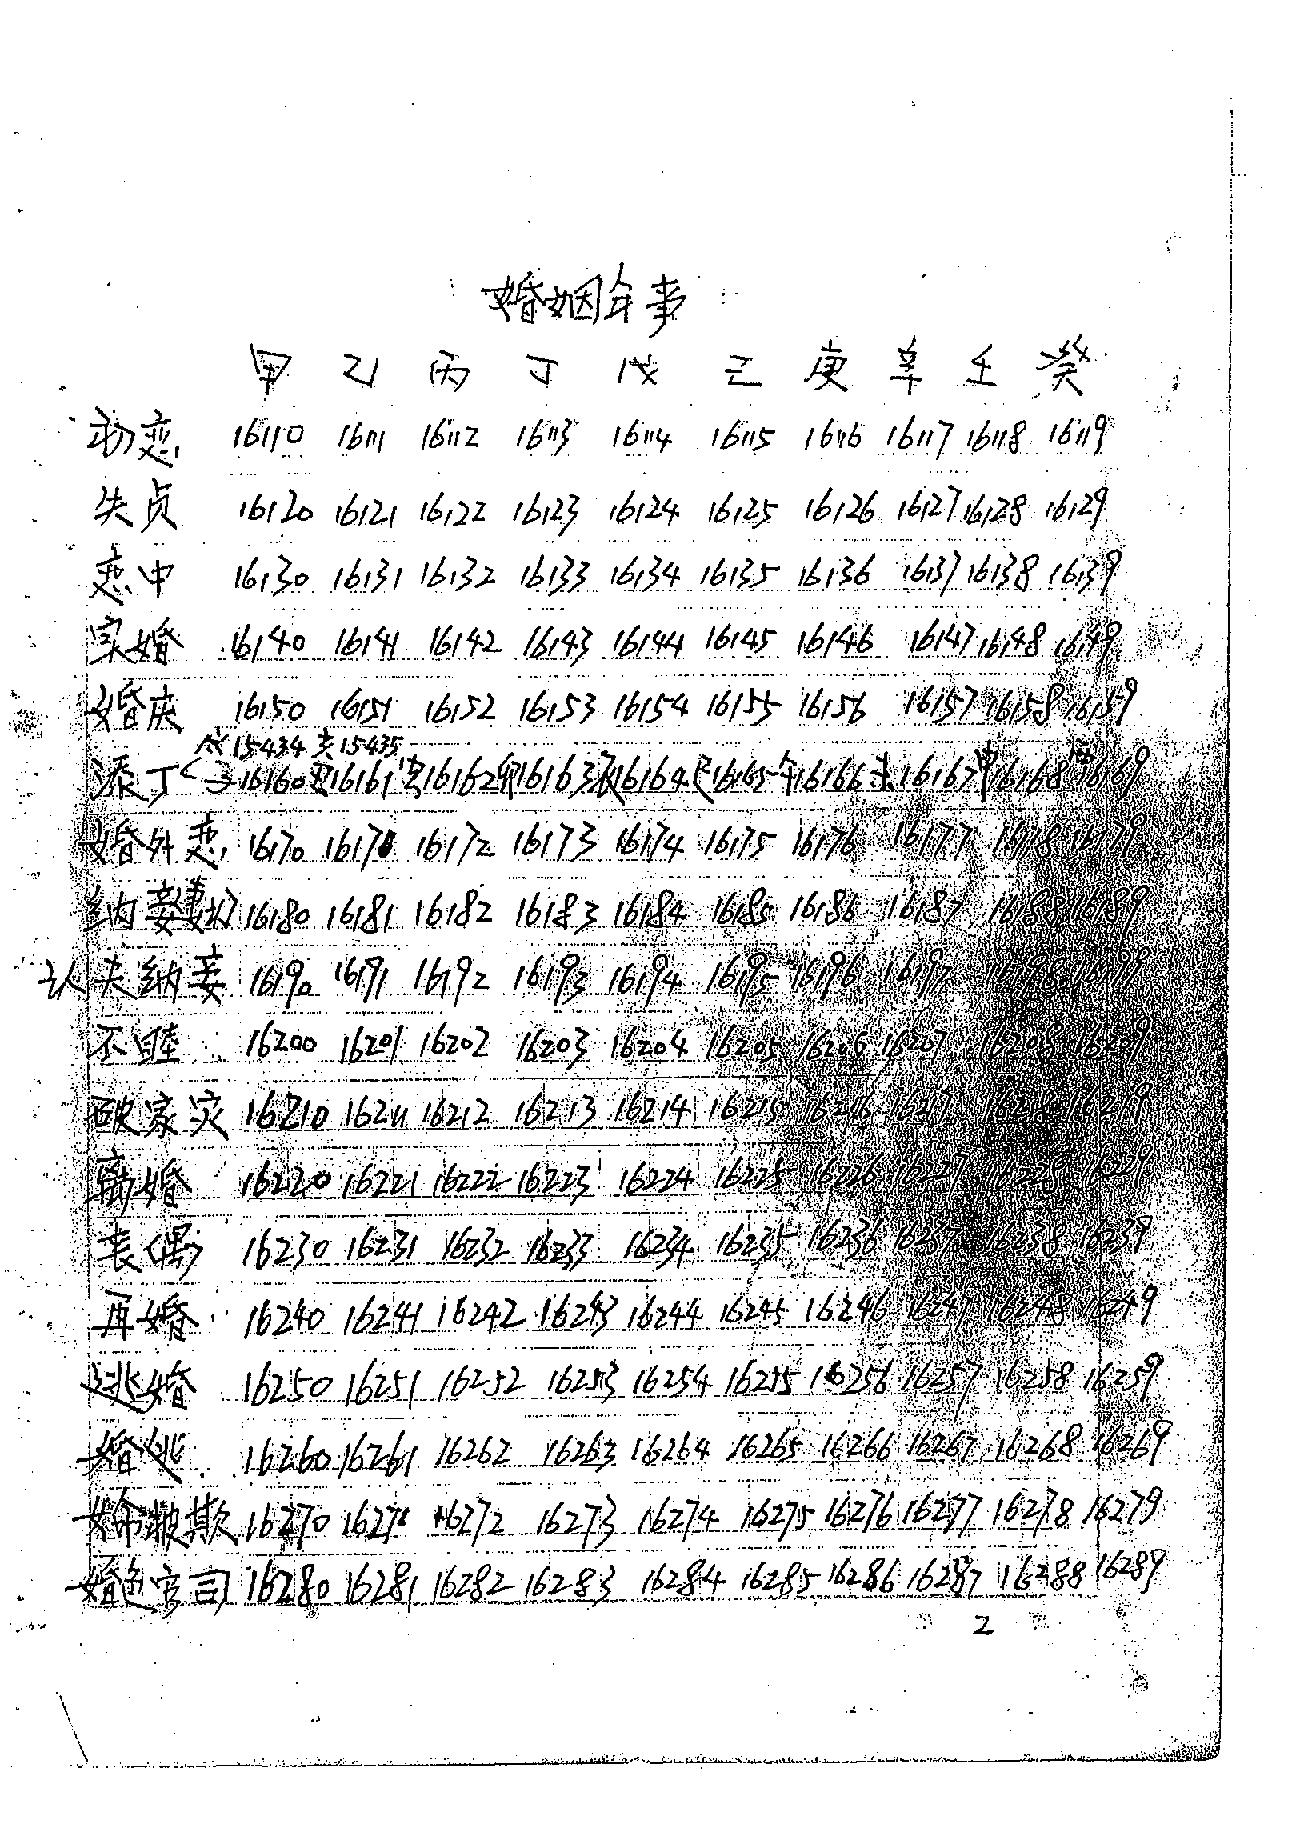 婚姻年事
甲 乙 丙 丁 戊 己 庚 辛 壬 癸
初恋 16110 16111 16112 16113 16114 16115 16116 16117 16118 16119
失贞 16120 16121 16122 16123 16124 16125 16126 16127 16128 16129
恋中 16130 16131 16132 16133 16134 16135 16136 16137 16138 16139
实婚 16140 16141 16142 16143 16144 16145 16146 16147 16148 16149
婚庆 16150 16151 16152 16153 16154 16155 16156 16157 16158 16159
戌15434 亥15435
添丁 子16160 丑16161 寅16162 卯16163 辰16164 巳16165 午16166 未16167 申16168 酉16169
婚外恋 16170 16171 16172 16173 16174 16175 16176 16177 16178 16179
纳妾 16180 16181 16182 16183 16184 16185 16186 16187 16188 16189
认夫纳妾 16190 16191 16192 16193 16194 16195 16196 16197 16198 16199
不睦 16200 16201 16202 16203 16204 16205 16206 16207 16208 16209
破家灾 16210 16211 16212 16213 16214 16215 16216 16217 16218 16219
离婚 16220 16221 16222 16223 16224 16225 16226 16227 16228 16229
丧偶 16230 16231 16232 16233 16234 16235 16236 16237 16238 16239
再婚 16240 16241 16242 16243 16244 16245 16246 16247 16248 16249
逃婚 16250 16251 16252 16253 16254 16255 16256 16257 16258 16259
婚逃 16260 16261 16262 16263 16264 16265 16266 16267 16268 16269
被欺 16270 16271 16272 16273 16274 16275 16276 16277 16278 16279
婚色官司 16280 16281 16282 16283 16284 16285 16286 16287 16288 16289
2